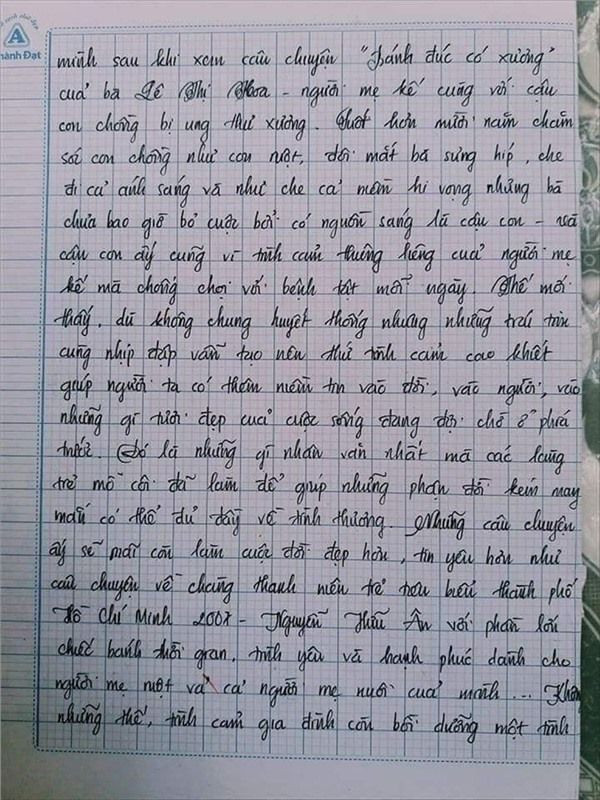 A
hành Đạt
mình sau khi xem câu chuyện "Bánh đúc có xương"
của bà Lê Thị Hoa - người mẹ kế cùng với cậu
con chồng bị ung thư xương. Suốt hơn mười năm chăm
sóc con chồng như con ruột, đôi mắt bà sưng híp, che
đi cả ánh sáng và như che cả mềm hi vọng nhưng bà
chưa bao giờ bỏ cuộc bởi có nguồn sáng là cậu con - và
cậu con ấy cũng vì tình cảm thiêng liêng của người mẹ
kế mà chống chọi với bệnh tật mỗi ngày. Thế mới
thấy, dù không chung huyết thống nhưng những trái tim
cùng nhịp đập vẫn tạo nên thứ tình cảm cao khiết
giúp người ta có thêm niềm tin vào đời, vào người, vào
những gì tươi đẹp của cuộc sống đang đợi chờ ở phía
trước. Đó là những gì nhân văn nhất mà các làng
trẻ mồ côi đã làm để giúp những phận đời kém may
mắn có thể đủ đầy về tình thương. Những câu chuyện
ấy sẽ mãi còn làm cuộc đời đẹp hơn, tin yêu hơn như
câu chuyện về chàng thanh niên trẻ tiêu biểu thành phố
Hồ Chí Minh 2007 - Nguyễn Hữu Ân với phần lớn
chiếc bánh thời gian, tình yêu và hạnh phúc dành cho
người mẹ ruột và cả người mẹ nuôi của mình... Không
những thế, tình cảm gia đình còn bồi dưỡng một tình